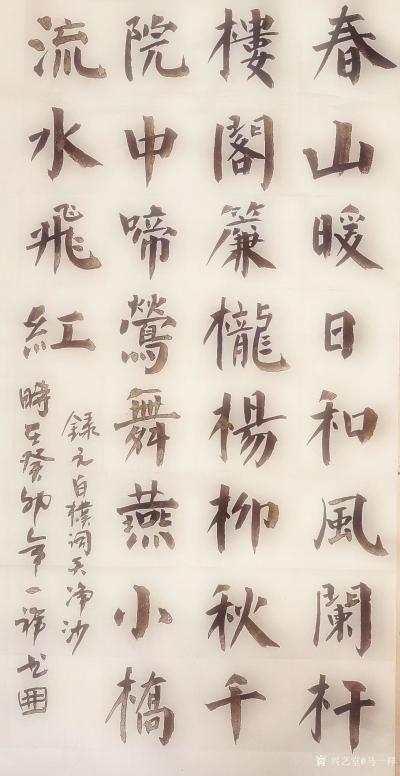 春山暖日和風闌杆
樓閣簾櫳楊柳秋千
院中啼鶯舞燕小橋
流水飛紅
錄元白樸詞天净沙
時在癸卯年一祥书
兴艺堂@马一祥